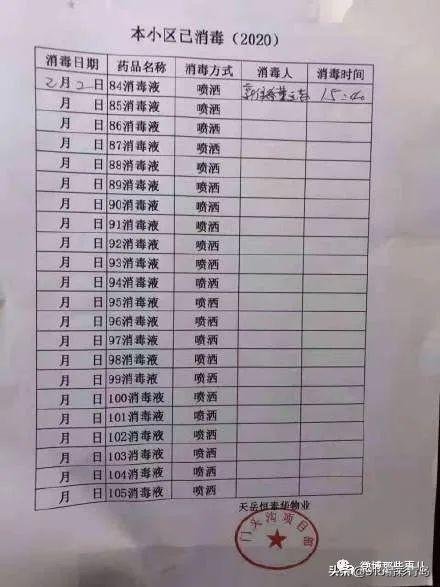 本小区已消毒（2020）
消毒日期 药品名称 消毒方式 消毒人 消毒时间
2月2日 84消毒液 喷洒 15:40
月 日 85消毒液 喷洒
月 日 86消毒液 喷洒
月 日 87消毒液 喷洒
月 日 88消毒液 喷洒
月 日 89消毒液 喷洒
月 日 90消毒液 喷洒
月 日 91消毒液 喷洒
月 日 92消毒液 喷洒
月 日 93消毒液 喷洒
月 日 94消毒液 喷洒
月 日 95消毒液 喷洒
月 日 96消毒液 喷洒
月 日 97消毒液 喷洒
月 日 98消毒液 喷洒
月 日 99消毒液 喷洒
月 日 100消毒液 喷洒
月 日 101消毒液 喷洒
月 日 102消毒液 喷洒
月 日 103消毒液 喷洒
月 日 104消毒液 喷洒
月 日 105消毒液 喷洒
天岳恒泰华物业
门头沟项目部
微博那些事儿
头条